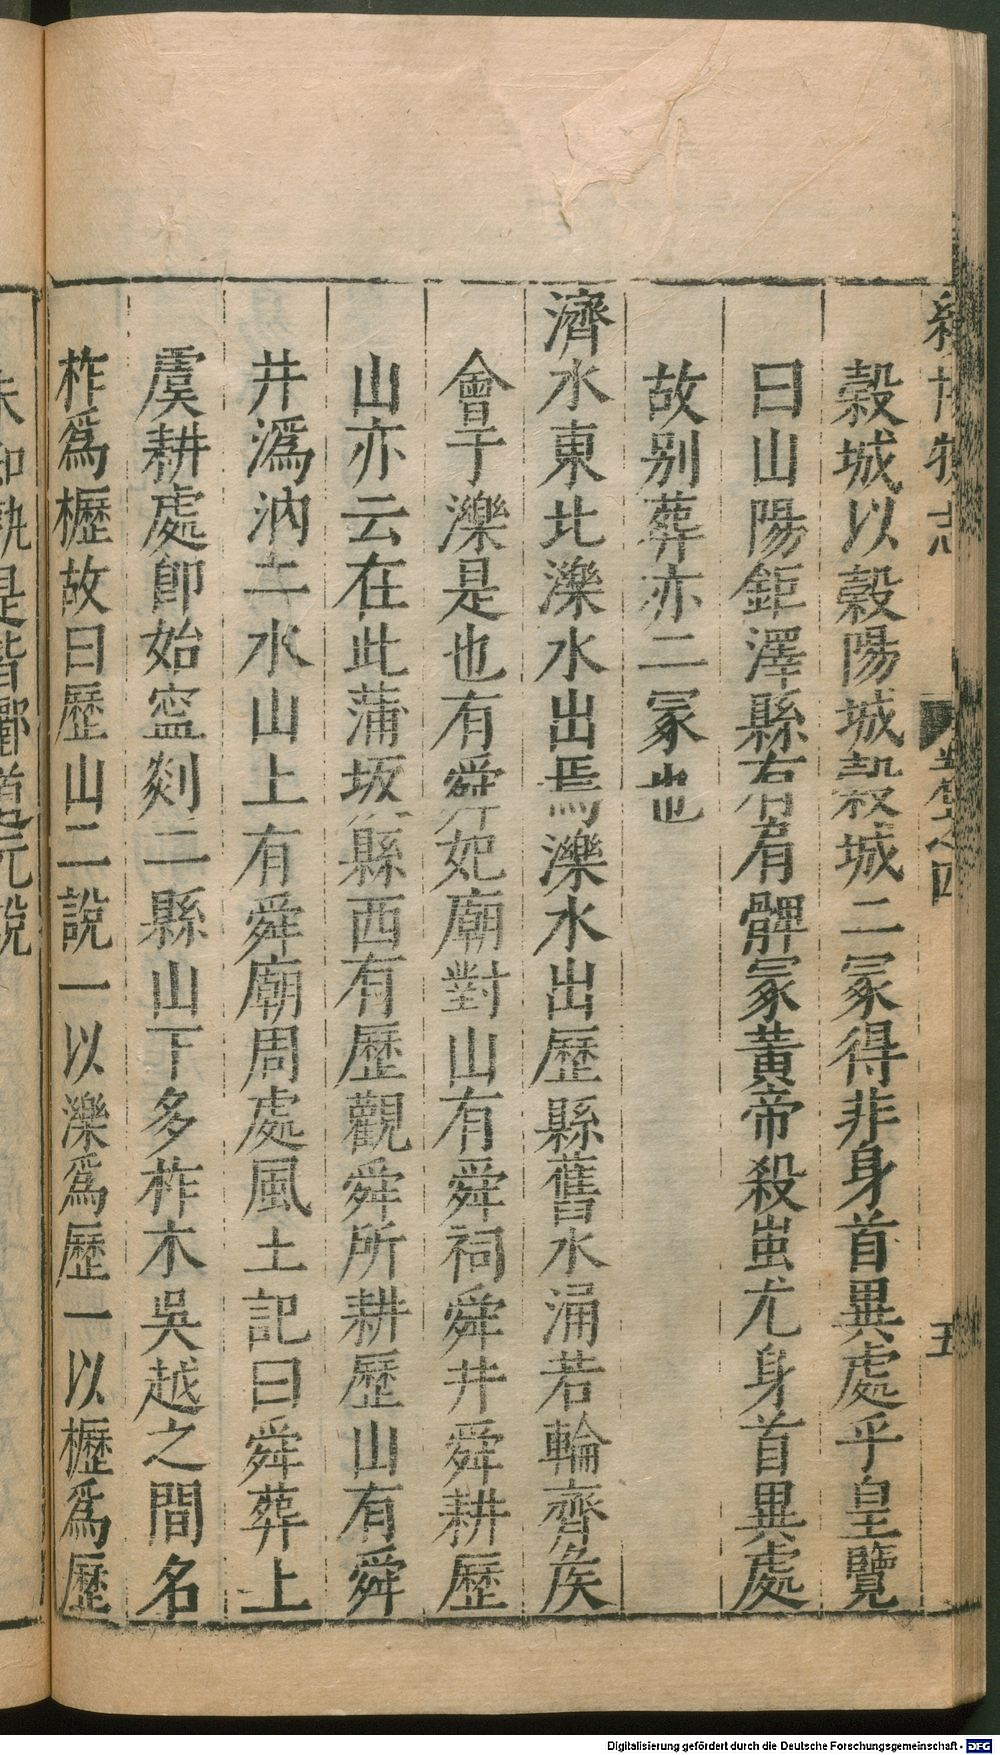 榖城以榖陽城榖城二冢得非身首異處乎皇覽
曰山陽鉅澤縣右有髀冢黃帝殺蚩尤身首異處
故别葬亦二冢也
濟水東北濼水出焉濼水出歷縣舊水涌若輪齊侯
會于濼是也有舜妃廟對山有舜祠舜井舜耕歷
山亦云在此蒲坂縣西有歷觀舜所耕歷山有舜
井溈汭二水山上有舜廟周處風土記曰舜葬上
虞耕處即始寍剡二縣山下多柞木吳越之間名
柞爲櫪故曰歷山二說一以濼爲歷一以櫪爲歷
Digitalisierung gefördert durch die Deutsche Forschungsgemeinschaft - DFG